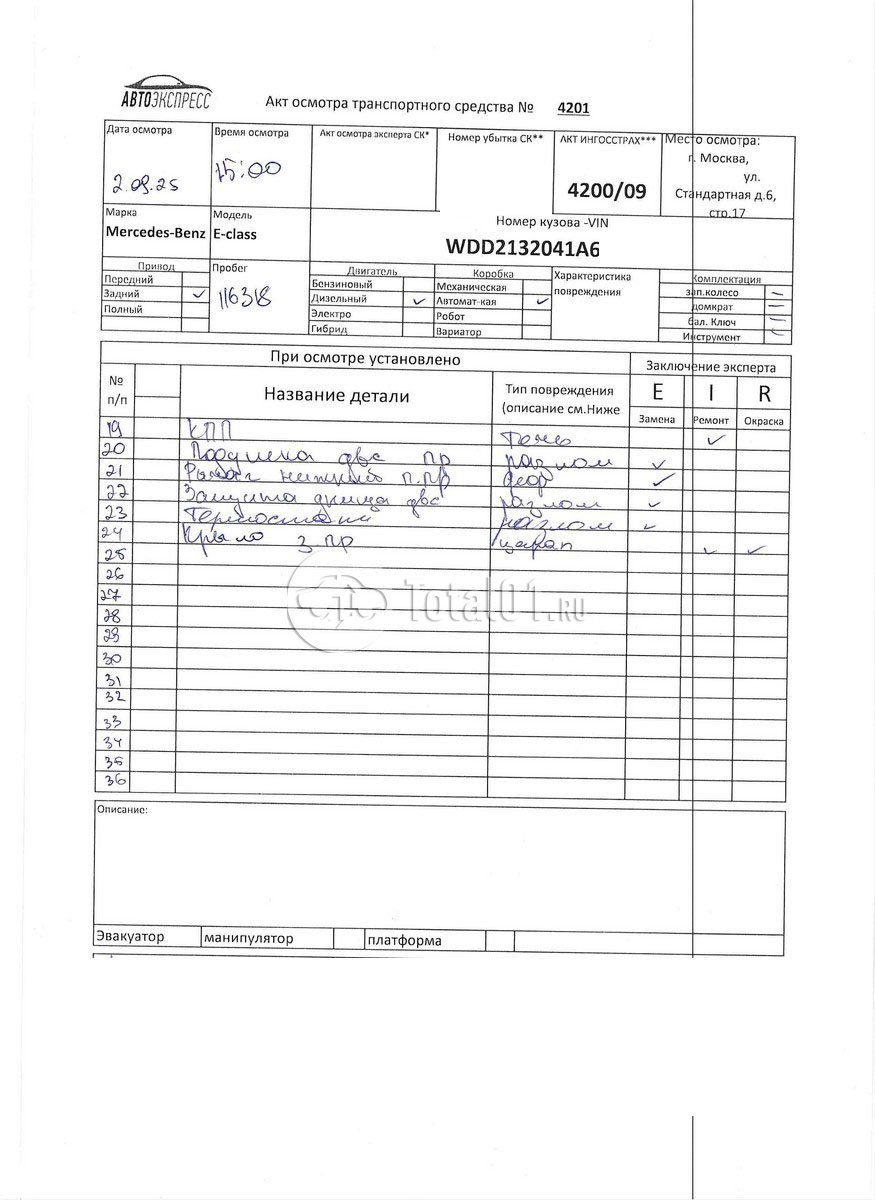 АВТОЭКСПРЕСС
Акт осмотра транспортного средства № 4201
Дата осмотра
2.09.25
Время осмотра
15:00
Акт осмотра эксперта СК*
Номер убытка СК**
АКТ ИНГОССТРАХ***
4200/09
Место осмотра:
г. Москва,
ул.
Стандартная д.6,
стр.17
Марка
Mercedes-Benz
Модель
E-class
Номер кузова -VIN
WDD2132041A6
Привод
Передний
Задний ✓
Полный
Пробег
116318
Двигатель
Бензиновый
Дизельный ✓
Электро
Гибрид
Коробка
Механическая
Автомат-кая ✓
Робот
Вариатор
Характеристика
повреждения
Комплектация
зап.колесо –
домкрат –
бал. Ключ –
Инструмент –
При осмотре установлено
Заключение эксперта
№
п/п
Название детали
Тип повреждения
(описание см.Ниже
E I R
Замена Ремонт Окраска
19 КПП ✓
20 Подушка двс пр разлом ✓
21 Рычаг нижний п.пр деор ✓
22 Защита днища двс разлом ✓
23 разлом ✓
24 Крыло з пр царап ✓ ✓
25
26
27
28
29
30
31
32
33
34
35
36
Total01.RU
Описание:
Эвакуатор манипулятор платформа